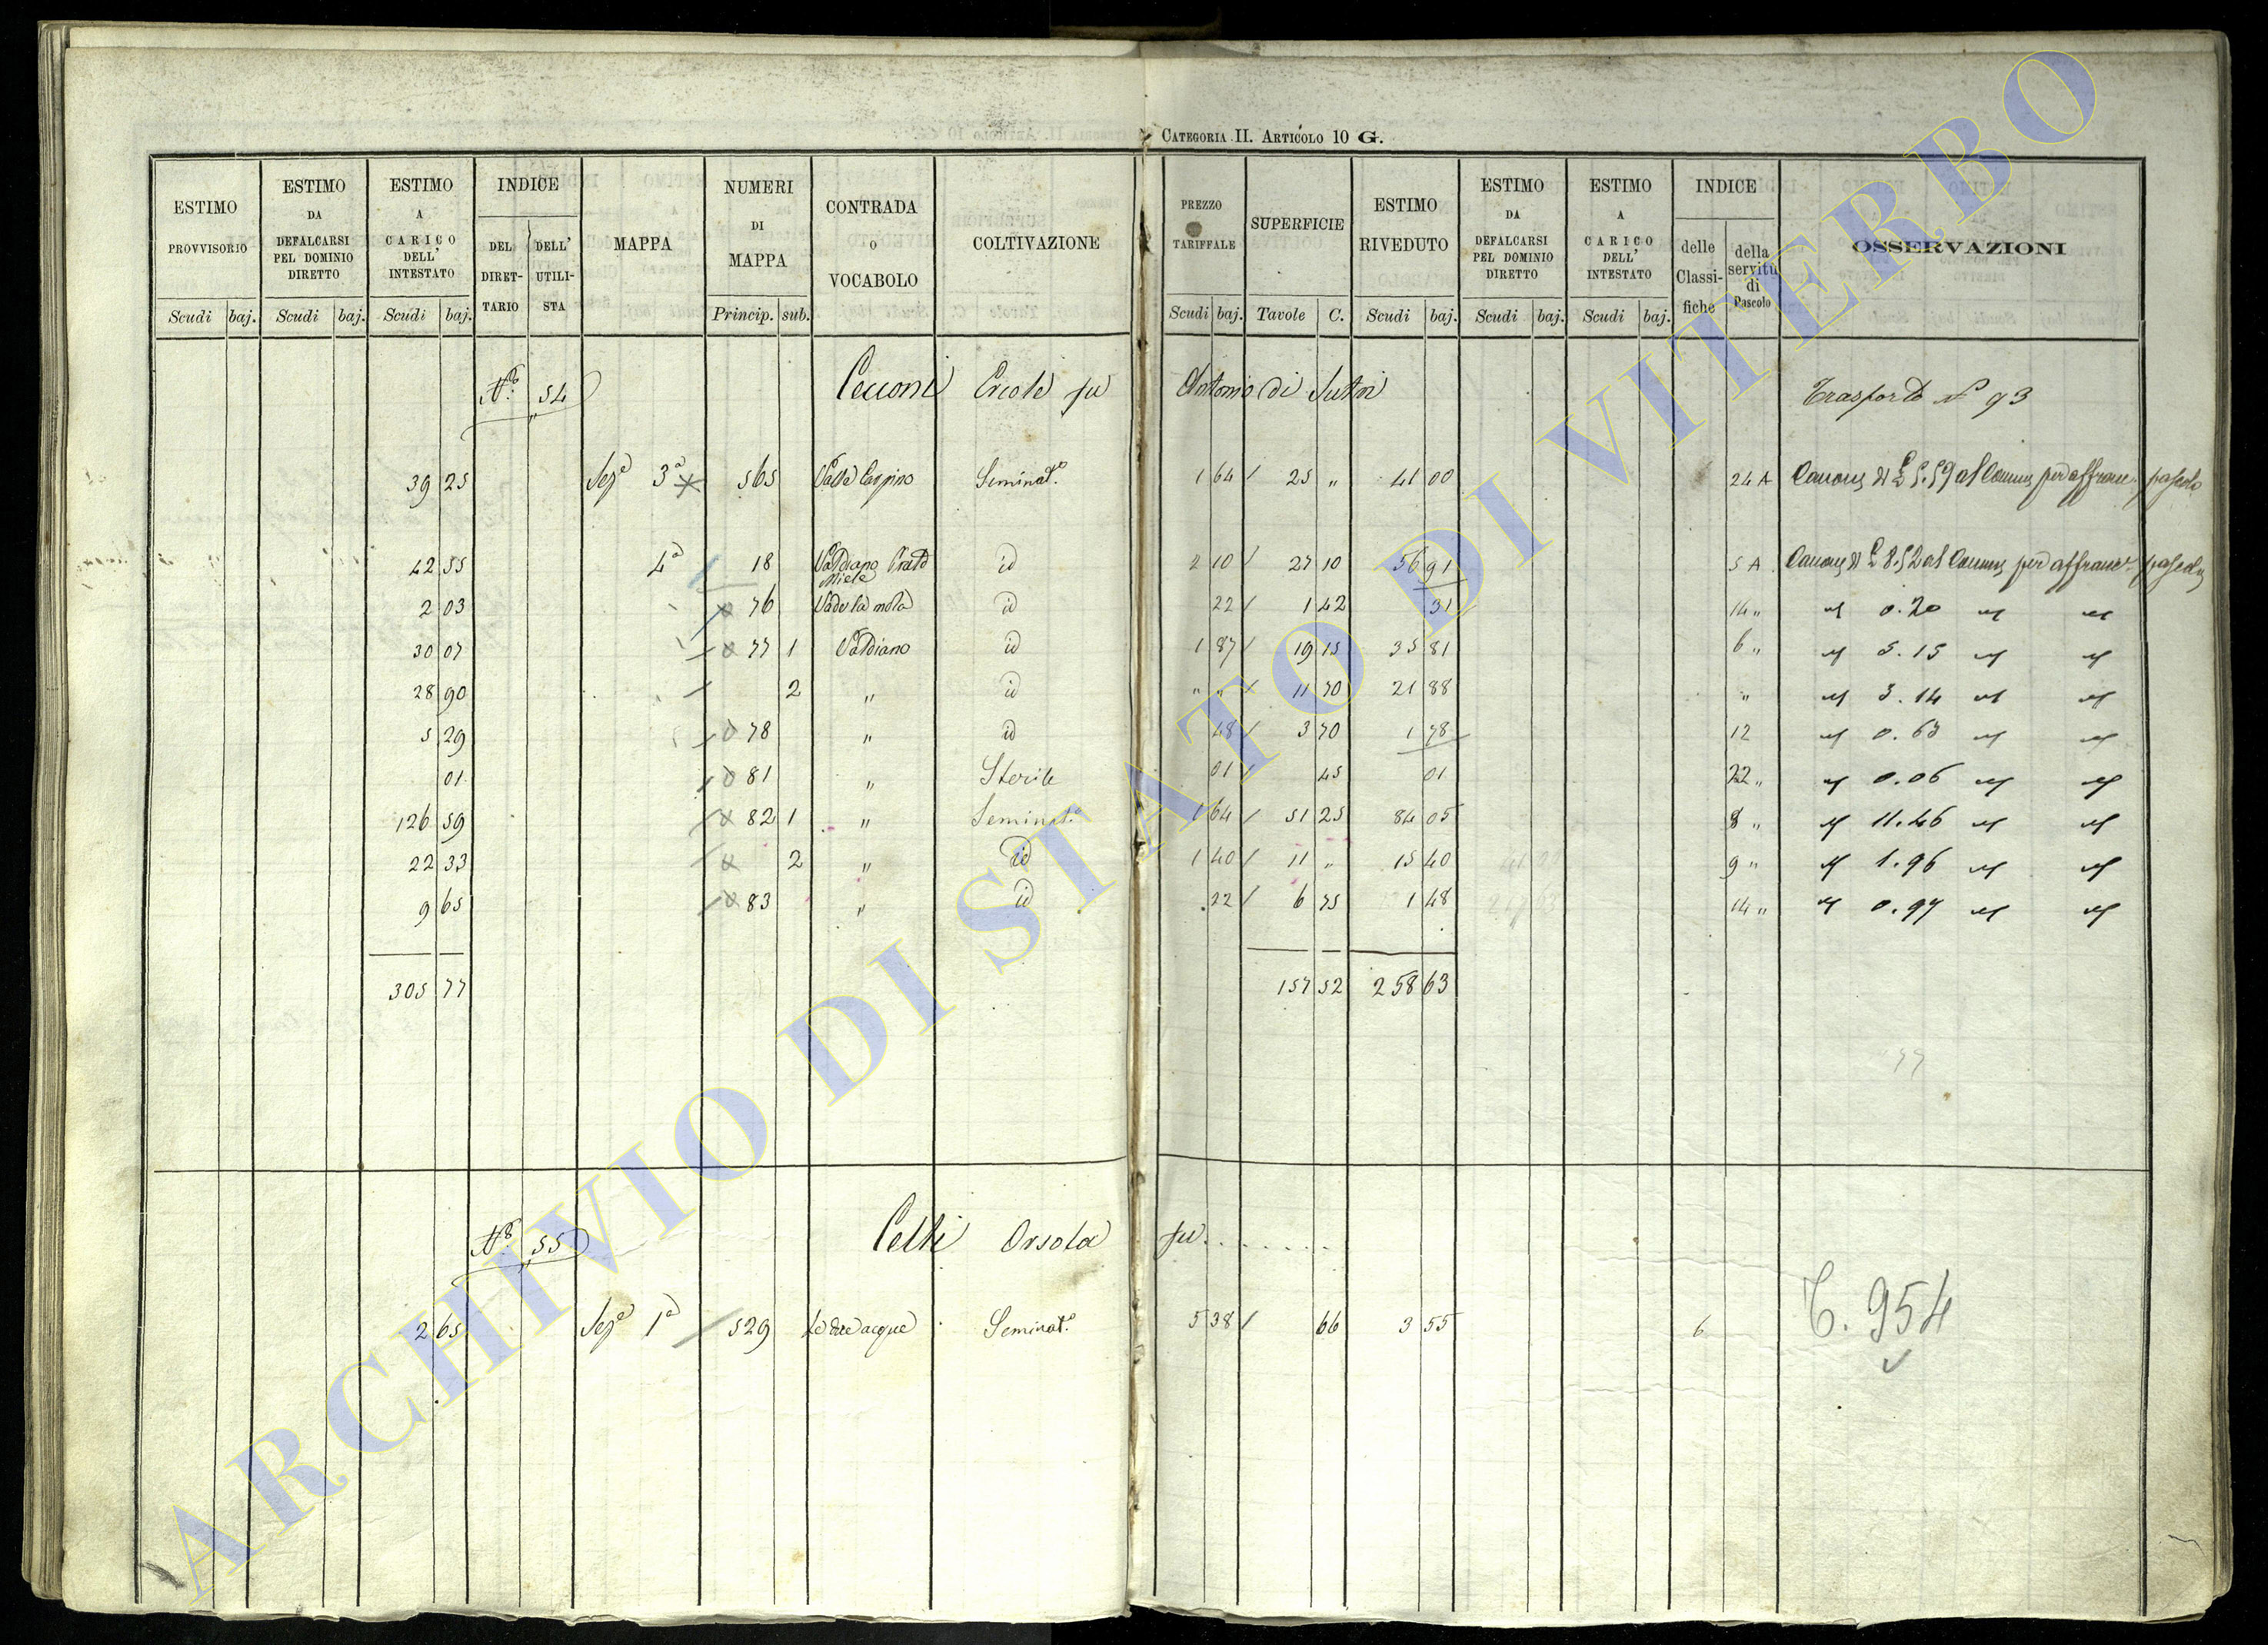 CATEGORIA II. ARTICOLO 10 G.
ESTIMO PROVVISORIO | ESTIMO DA DEFALCARSI PEL DOMINIO DIRETTO | ESTIMO A CARICO DELL' INTESTATO | INDICE DEL DIRETTARIO | DELL' UTILISTA | MAPPA | NUMERI DI MAPPA | CONTRADA O VOCABOLO | COLTIVAZIONE | PREZZO TARIFFALE | SUPERFICIE | ESTIMO RIVEDUTO | ESTIMO DA DEFALCARSI PEL DOMINIO DIRETTO | ESTIMO A CARICO DELL' INTESTATO | INDICE delle Classifiche | della servitù di Pascolo | OSSERVAZIONI
Scudi baj. Scudi baj. Scudi baj. Princip. sub. Scudi baj. Tavole C. Scudi baj. Scudi baj. Scudi baj.
N.° 54 Cecconi Ercole fu Antonio di Sutri Trasporto N° 93
39 25 Sez.e 3a 565 Valle Carpino Seminat.o 1 64 25 " 41 00 24 A Canone di £ 5.59 al Comune per affranc. pascolo
42 55 4a 18 Valdiano Prato Miele id 2 10 27 10 56 91 5 A Canone di £ 8.52 al Comune per affranc. pascolo
2 03 76 Vado la mola id 22 1 42 31 14 " 0.20
30 07 77 1 Valdiano id 1 87 19 15 35 81 6 " 5.15
28 90 2 " id " " 11 70 21 88 " 3.14
5 29 78 " id 48 3 70 1 78 12 0.63
01 81 " Sterile 01 45 01 22 " 0.06
126 59 82 1 " Seminat.o 1 64 51 25 84 05 8 " 11.46
22 33 2 " id 1 40 11 " 15 40 9 " 1.96
9 65 83 " id 22 6 75 1 48 14 " 0.97
305 77 157 52 258 63
N.° 55 Celli Orsola fu . . . . . . .
2 65 Sez.e 1a 529 Le due acque Seminat.o 5 38 66 3 55 6 T. 954
ARCHIVIO DI STATO DI VITERBO